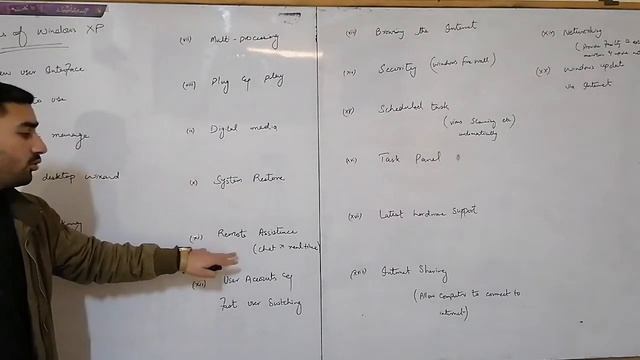 of Windows XP
new user Interface
to use
manage
desktop wizard
(vii) Multi-processing
(viii) Plug & play
Digital media
(x) System Restore
(xi) Remote Assistance
(chat & real time)
(xii) User Accounts &
Fast user Switching
Browsing the Internet
Security (windows firewall)
(xv) Scheduled task
(virus Scanning etc)
automatically
Task Panel
(xvii) Latest hardware support
(xviii) Internet Sharing
(Allow Computers to connect to
internet)
(xix) Networking
(xx) Windows update
via Internet